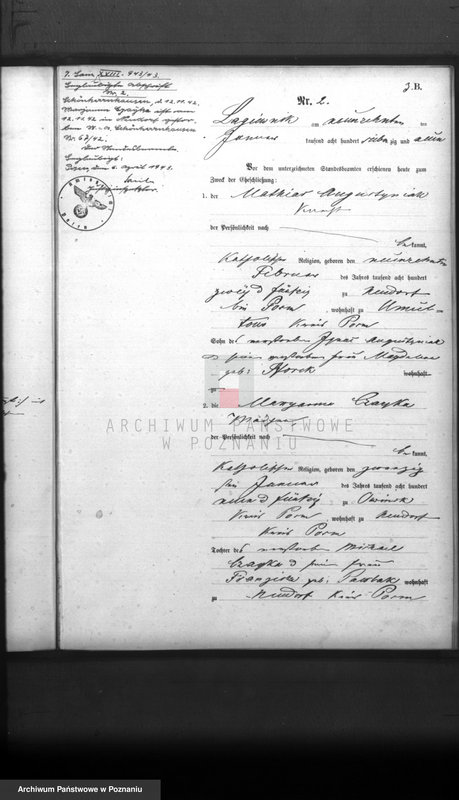 J. Sam. XXIII. 943/43.
Beglaubigte Abschrift
Nr. 2.
Schönherrnhausen, d. 12.11.42.
Marjanna Czayka ist am
12.11.42 in Neudorf
Nr. 57/42.
Der Standesbeamte
Beglaubigt:
Posen, den 6. April 1943.
Amtsgericht
Posen
3. B.
Nr. 2.
Lagiewnik am neunzehnten ten
Januar tausend acht hundert siebzig und neun
Vor dem unterzeichneten Standesbeamten erschienen heute zum
Zweck der Eheschließung:
1. der Mathias Augustyniak
Knecht
der Persönlichkeit nach
bekannt,
katholischer Religion, geboren den neunzehnten
Februar des Jahres tausend acht hundert
zwei und fünfzig zu Neudorf
bei Posen, wohnhaft zu Umul=
towo Kreis Posen
Sohn des verstorbenen Ignatz Augustyniak
und seiner verstorbenen Frau Magdalena
geb: wohnhaft
zu
2. die Maryanna Czayka
Mädchen
der Persönlichkeit nach
bekannt,
katholischer Religion, geboren den zwanzig
ten Januar des Jahres tausend acht hundert
neun und fünfzig zu Owinsk
Kreis Posen, wohnhaft zu Neudorf
Kreis Posen
Tochter des verstorbenen Michael
Czayka und seiner Frau
Franziska geb: wohnhaft
zu Neudorf Kreis Posen
ARCHIWUM PAŃSTWOWE
W POZNANIU
Archiwum Państwowe w Poznaniu